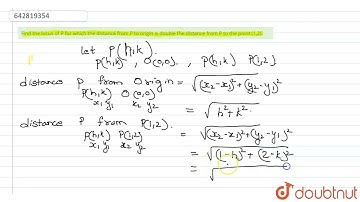 642819354
Find the locus of P for which the distance from P to origin is double the distance from P to the point (1,2).
let P(h,k).
P
P(h,k), O(0,0), P(h,k) P(1,2)
distance P from Origin = √(x₂-x₁)²+(y₂-y₁)²
P(h,k) O(0,0)
x₁ y₁ x₂ y₂
= √h²+k².
distance P from P(1,2).
P(h,k) P(1,2)
x₁ y₁ x₂ y₂
= √(x₂-x₁)²+(y₂-y₁)²
= √(1-h)²+(2-k)²
= √
doubtnut